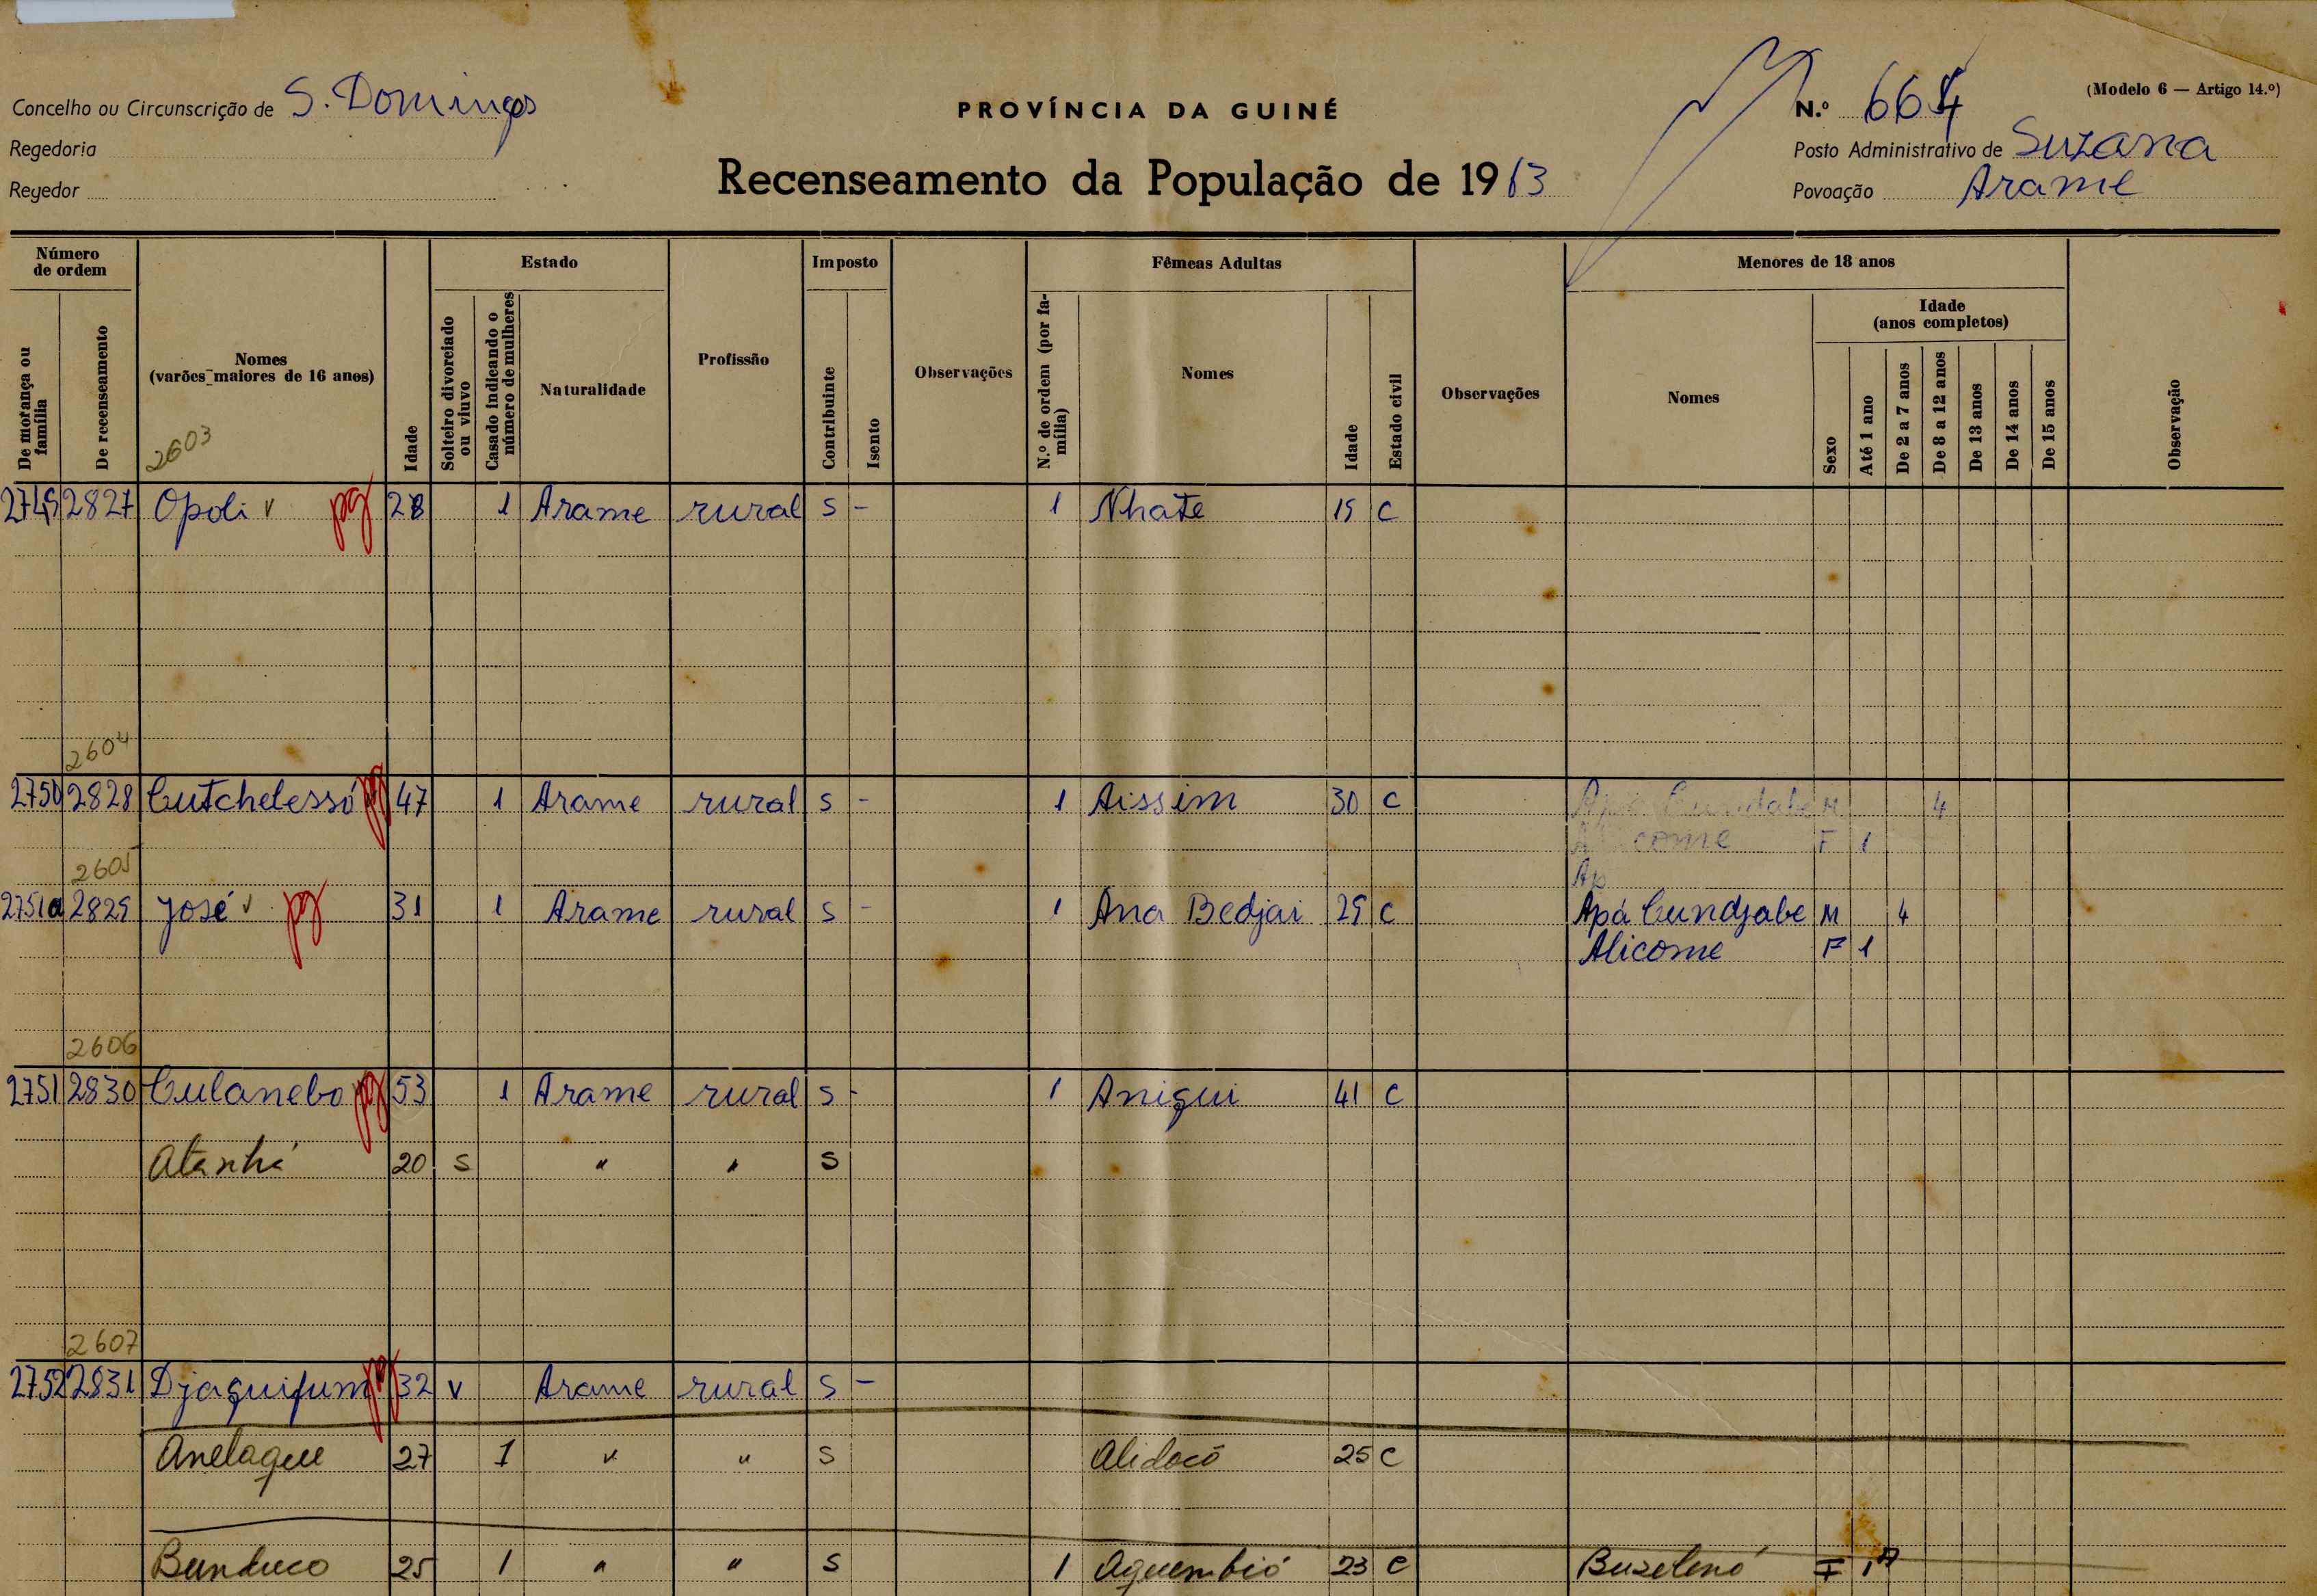 Concelho ou Circunscrição de S. Domingos
Regedoria
Regedor
PROVÍNCIA DA GUINÉ
Recenseamento da População de 1963
(Modelo 6 — Artigo 14.º)
N.º 664
Posto Administrativo de Suzana
Povoação Arame
Número de ordem
De morança ou família
De recenseamento
Nomes (varões maiores de 16 anos)
2603
Idade
Estado
Solteiro divorciado ou viuvo
Casado indicando o número de mulheres
Naturalidade
Profissão
Imposto
Contribuinte
Isento
Observações
Fêmeas Adultas
N.º de ordem (por família)
Nomes
Idade
Estado civil
Observações
Menores de 18 anos
Nomes
Idade (anos completos)
Sexo
Até 1 ano
De 2 a 7 anos
De 8 a 12 anos
De 13 anos
De 14 anos
De 15 anos
Observação
2749 2827 Opoli v pg 28 1 Arame rural S - 1 Nhate 19 C
2604
2750 2828 Cutchelessó pg 47 1 Arame rural S - 1 Aissim 30 C M 4
come F 1
2605
Ap
2751a 2829 José v pg 31 1 Arame rural S - 1 Ana Bedjai 29 C Apá Cundjabe M 4
Alicome F 1
2606
2751 2830 Culanebo pg 53 1 Arame rural S - 1 Anigui 41 C
Atanhá 20 S " " S
2607
2752 2831 Djaquifum pg 32 V Arame rural S -
Anelague 27 1 " " S Alidocó 25 C
Bunduco 25 1 " " S 1 Aquembió 23 C Buzelenó F 1A